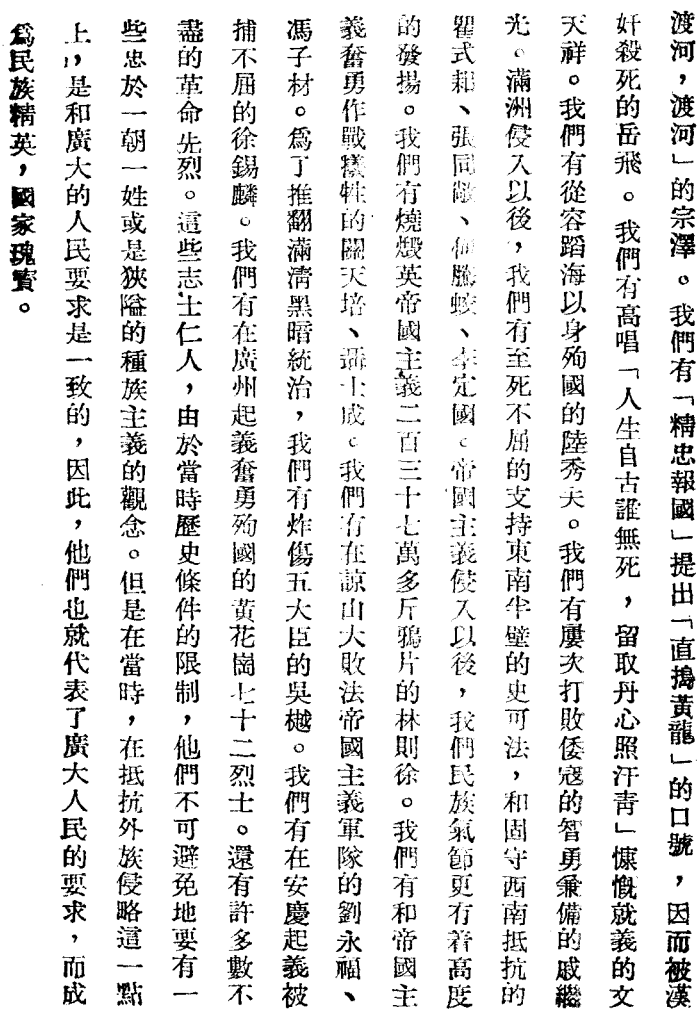 渡河，渡河」的宗澤。我們有「精忠報國」提出「直搗黃龍」的口號，因而被漢
奸殺死的岳飛。我們有高唱「人生自古誰無死，留取丹心照汗青」慷慨就義的文
天祥。我們有從容蹈海以身殉國的陸秀夫。我們有屢次打敗倭寇的智勇兼備的戚繼
光。滿洲侵入以後，我們有至死不屈的支持東南半壁的史可法，和固守西南抵抗的
瞿式耜、張同敞、何騰蛟、李定國。帝國主義侵入以後，我們民族氣節更有着高度
的發揚。我們有燒燬英帝國主義二百三十七萬多斤鴉片的林則徐。我們有和帝國主
義奮勇作戰犧牲的關天培、聶士成。我們有在諒山大敗法帝國主義軍隊的劉永福、
馮子材。爲了推翻滿清黑暗統治，我們有炸傷五大臣的吳樾。我們有在安慶起義被
捕不屈的徐錫麟。我們有在廣州起義奮勇殉國的黃花崗七十二烈士。還有許多數不
盡的革命先烈。這些志士仁人，由於當時歷史條件的限制，他們不可避免地要有一
些忠於一朝一姓或是狹隘的種族主義的觀念。但是在當時，在抵抗外族侵略這一點
上，是和廣大的人民要求是一致的，因此，他們也就代表了廣大人民的要求，而成
爲民族精英，國家瑰寶。